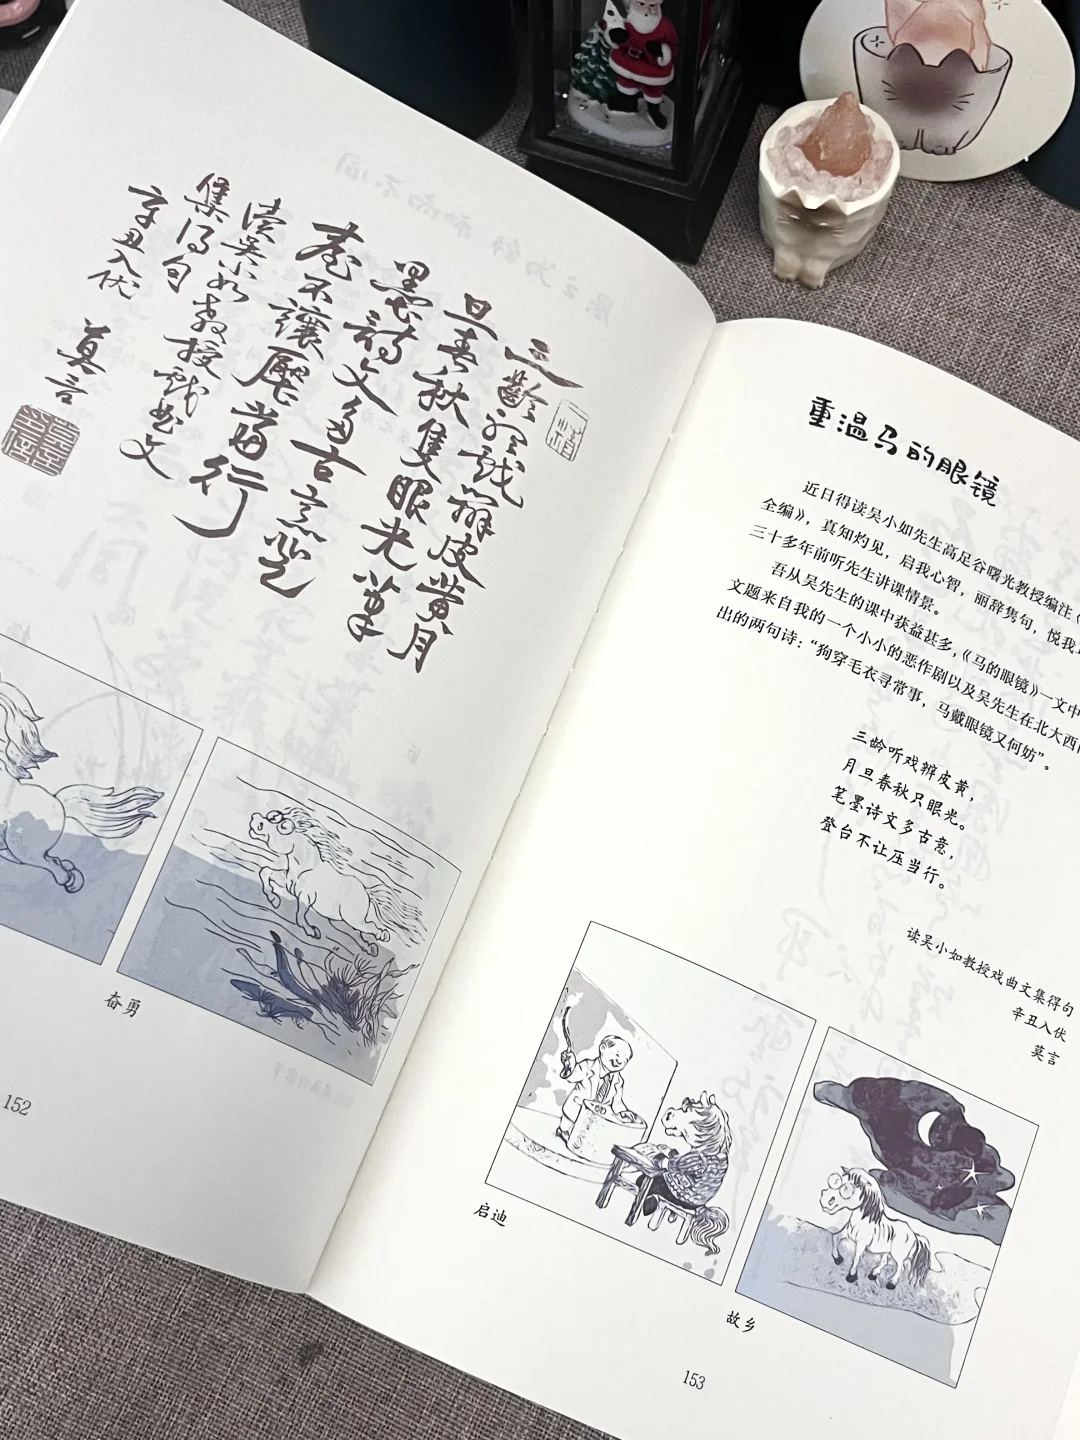 三龄听戏辨皮黄月
旦春秋隻眼光笔
墨詩文多古意登
臺不讓壓當行
读吴小如教授戏曲文
集得句
辛丑入伏
莫言
奋勇
152
重温马的眼镜
近日得读吴小如先生高足谷曙光教授编注《
全编》，真知灼见，启我心智，丽辞隽句，悦我
三十多年前听先生讲课情景。
吾从吴先生的课中获益甚多，《马的眼镜》一文中
文题来自我的一个小小的恶作剧以及吴先生在北大西
出的两句诗：“狗穿毛衣寻常事，马戴眼镜又何妨”。
三龄听戏辨皮黄，
月旦春秋只眼光。
笔墨诗文多古意，
登台不让压当行。
读吴小如教授戏曲文集得句
辛丑入伏
莫言
启迪
故乡
153